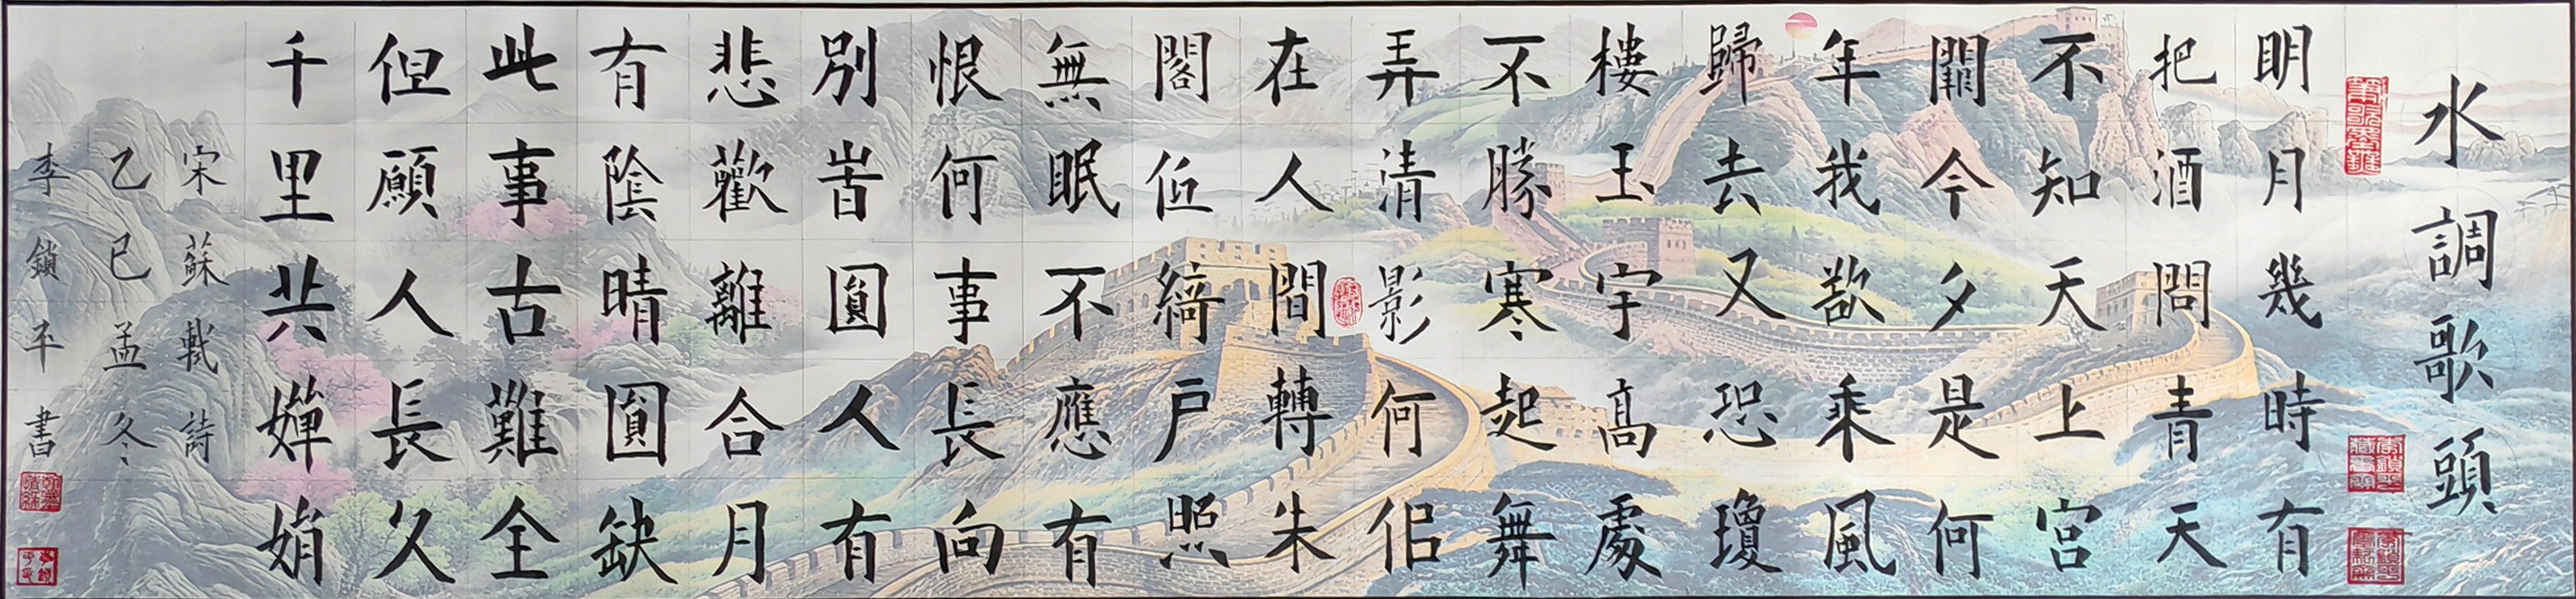 水調歌頭
明月幾時有
把酒問青天
不知天上宮
闕今夕是何
年我欲乘風
歸去又恐瓊
樓玉宇高處
不勝寒起舞
弄清影何佀
在人間轉朱
閣低綺戶照
無眠不應有
恨何事長向
別旹圓人有
悲歡離合月
有陰晴圓缺
此事古難全
但願人長久
千里共嬋娟
宋蘇軾詩
乙巳孟冬
李鎖平書